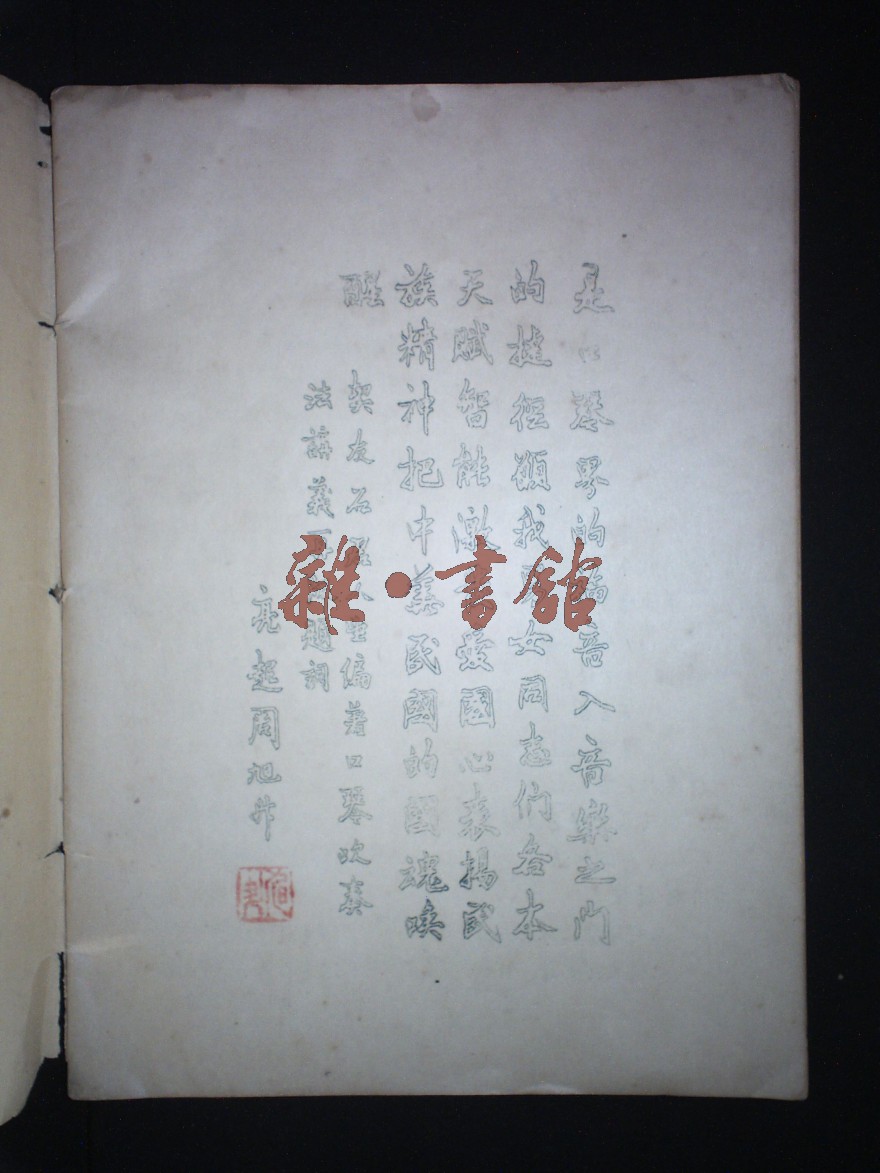 是口琴界的福音入音樂之門
的捷徑願我 女同志們各本
天賦智能激 愛國心表揚民
族精神把中華民國的國魂喚
醒
契友石 編著口琴吹奏
法講義 題詞
亮起周旭升
雜·書館